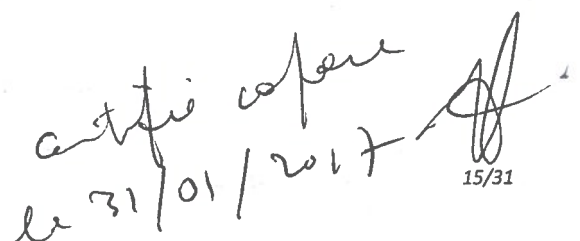 certifié conforme
le 31/01/2017
15/31